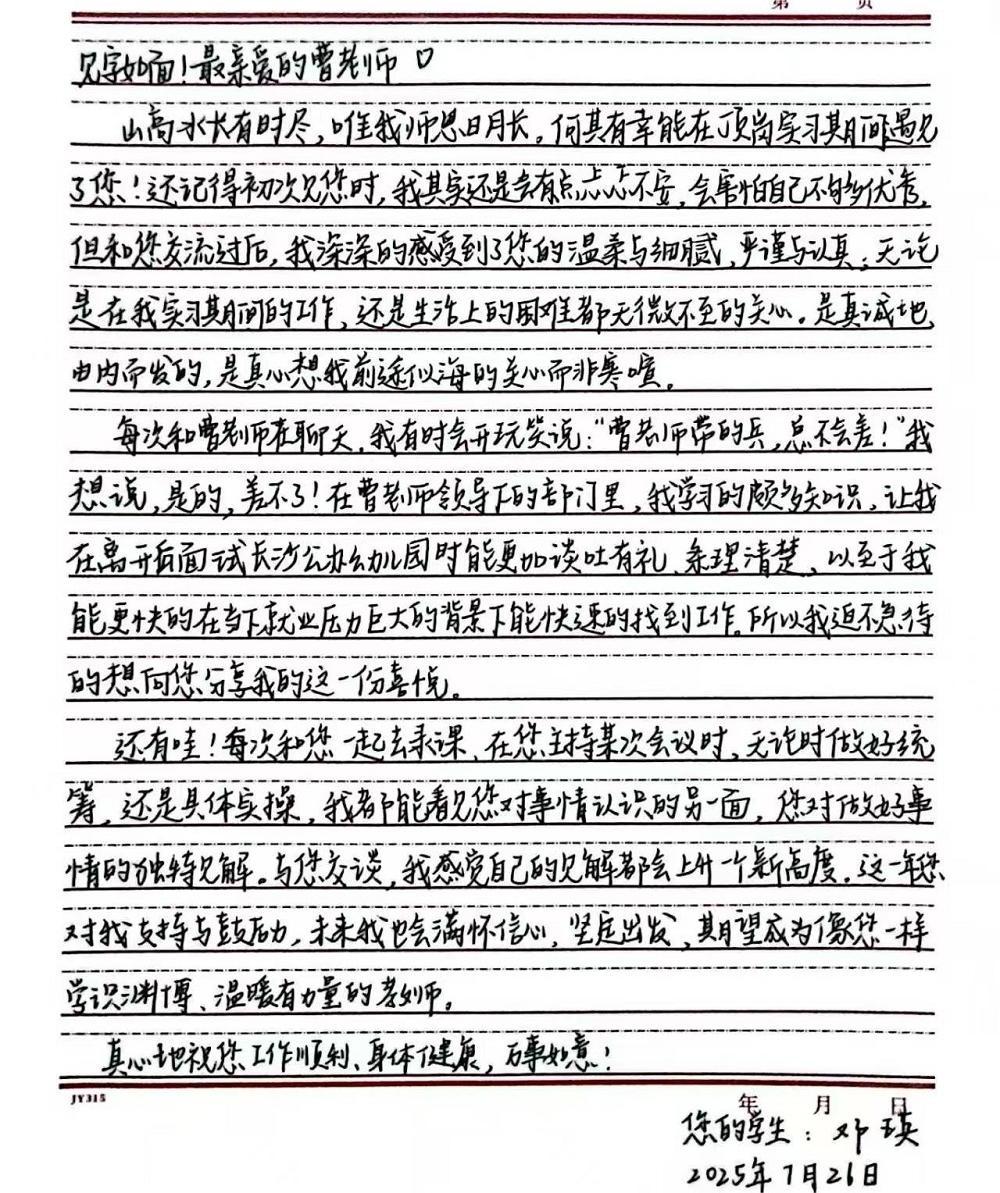 第 页
见字如面！最亲爱的曹老师♡
山高水长有时尽，唯我师恩日月长。何其有幸能在顶岗实习期间遇见
了您！还记得初次见您时，我其实还是会有点忐忑不安，会害怕自己不够优秀，
但和您交流过后，我深深的感受到了您的温柔与细腻、严谨与认真，无论
是在我实习期间的工作、还是生活上的困难都无微不至的关心。是真诚地、
由内而发的，是真心想我前途似海的关心而非寒喧。
每次和曹老师在聊天，我有时会开玩笑说：“曹老师带的兵，总不会差！”我
想说，是的，差不了！在曹老师领导下的部门里，我学习的颇多知识，让我
在离开后面试长沙公办幼儿园时能更加谈吐有礼、条理清楚，以至于我
能更快的在当下就业压力巨大的背景下能快速的找到工作。所以我迫不急待
的想向您分享我的这一份喜悦。
还有哇！每次和您一起去录课、在您主持某次会议时，无论时做好统
筹，还是具体实操，我都能看见您对事情认识的另一面，您对做好事
情的独特见解。与您交谈，我感觉自己的见解都会上升一个新高度。这一年您
对我支持与鼓励，未来我也会满怀信心，坚定出发，期望成为像您一样
学识渊博、温暖有力量的老师。
真心地祝您工作顺利、身体健康，万事如意！
JY315
年 月 日
您的学生：邓瑛
2025年7月26日